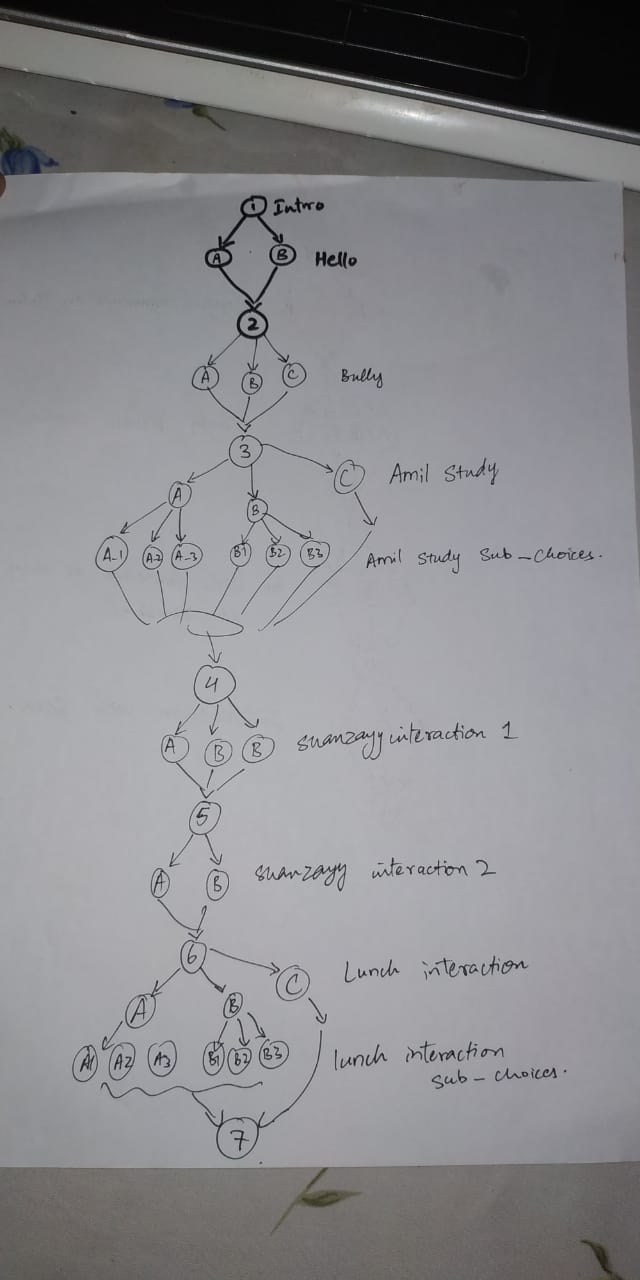 1 Intro
A B Hello
2
A B C Bully
3
A B C Amil Study
A-1 A-2 A-3 B1 B2 B3 Amil Study Sub-Choices.
4
A B B suanzayy interaction 1
5
A B suanzayy interaction 2
6
A B C Lunch interaction
A1 A2 A3 B1 B2 B3 lunch interaction
sub-choices.
7